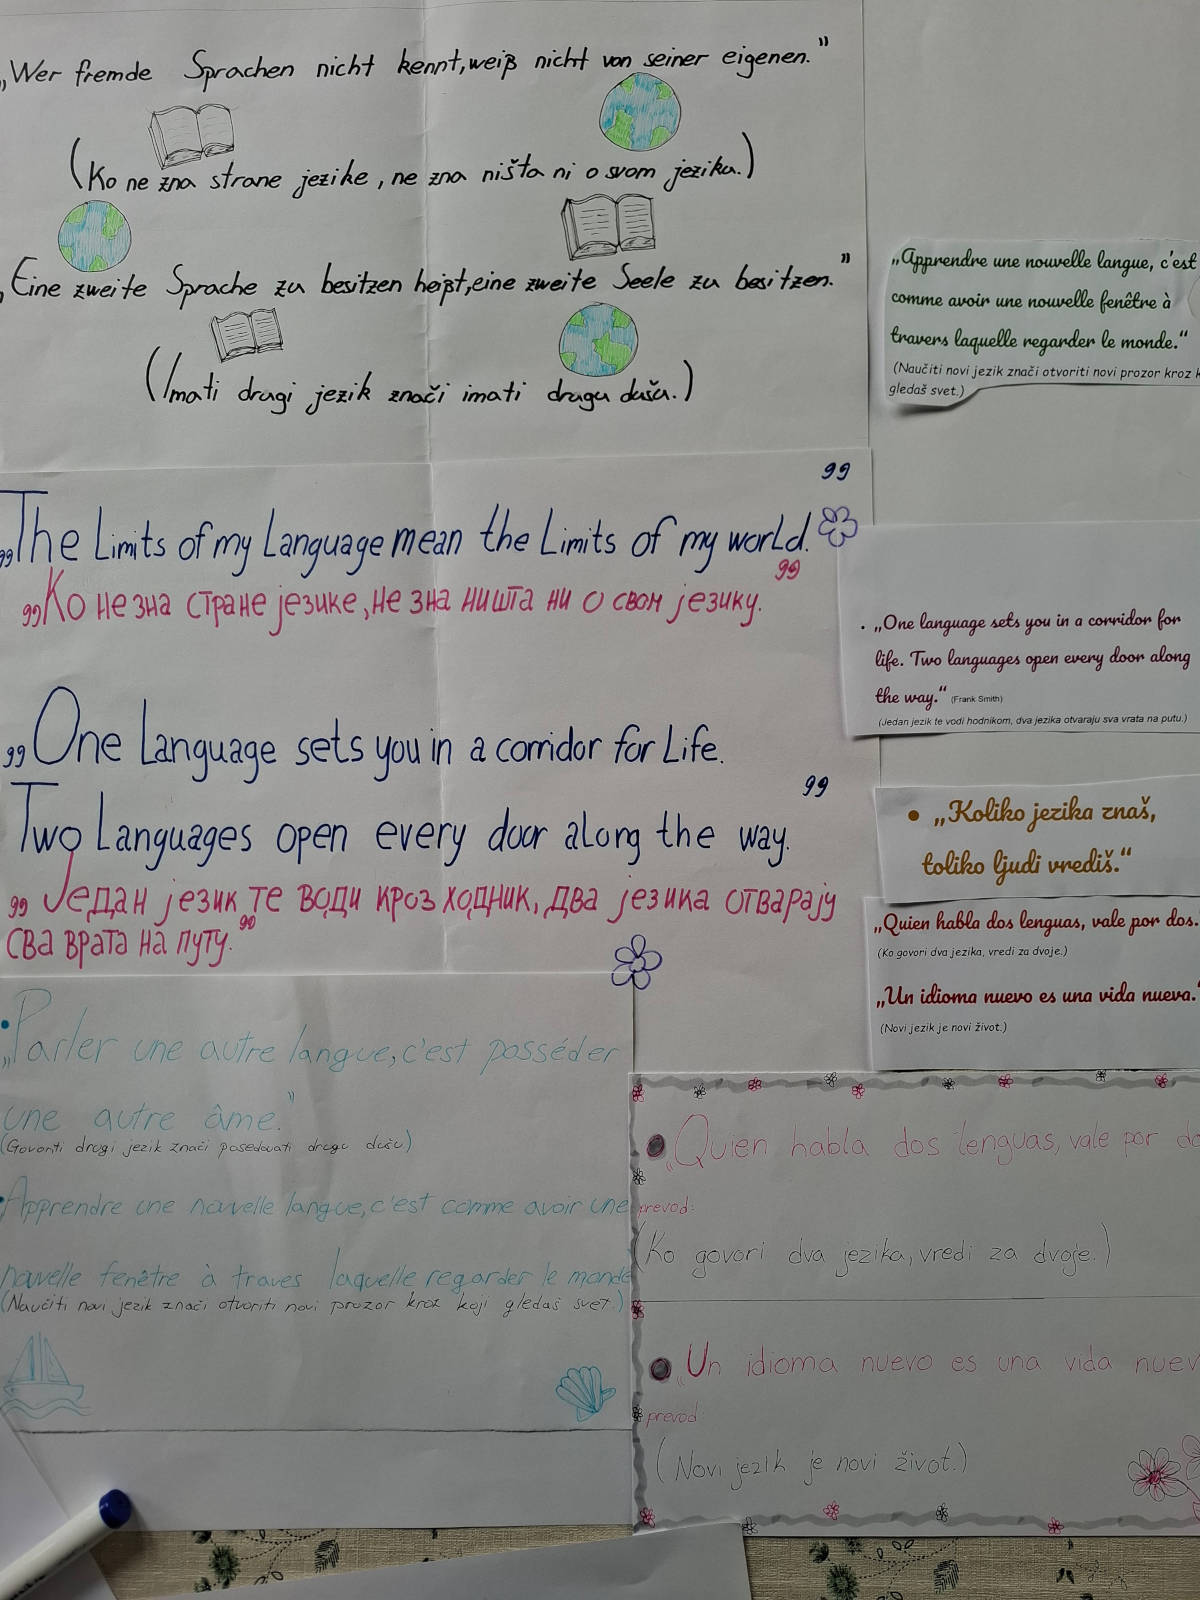 „Wer fremde Sprachen nicht kennt, weiß nicht von seiner eigenen.”
(Ko ne zna strane jezike, ne zna ništa ni o svom jeziku.)
„Eine zweite Sprache zu besitzen heißt, eine zweite Seele zu besitzen.”
(Imati drugi jezik znači imati drugu dušu.)
„The Limits of my Language mean the Limits of my world.”
„Ко не зна стране језике, не зна ништа ни о свом језику.”
„One Language sets you in a corridor for Life.
Two Languages open every door along the way.”
„Један језик те води кроз ходник, два језика отварају
сва врата на путу.”
• „Parler une autre langue, c'est posséder
une autre âme.”
(Govoriti drugi jezik znači posedovati drugu dušu)
• Apprendre une nouvelle langue, c'est comme avoir une
nouvelle fenêtre à traves laquelle regarder le monde
(Naučiti novi jezik znači otvoriti novi prozor kroz koji gledaš svet.)
„Apprendre une nouvelle langue, c'est
comme avoir une nouvelle fenêtre à
travers laquelle regarder le monde.“
(Naučiti novi jezik znači otvoriti novi prozor kroz k
gledaš svet.)
• „One language sets you in a corridor for
life. Two languages open every door along
the way.“ (Frank Smith)
(Jedan jezik te vodi hodnikom, dva jezika otvaraju sva vrata na putu.)
• „Koliko jezika znaš,
toliko ljudi vrediš.“
„Quien habla dos lenguas, vale por dos.
(Ko govori dva jezika, vredi za dvoje.)
„Un idioma nuevo es una vida nueva.“
(Novi jezik je novi život.)
• „Quien habla dos lenguas, vale por do
prevod:
(Ko govori dva jezika, vredi za dvoje.)
• „Un idioma nuevo es una vida nuev
prevod
(Novi jezik je novi život.)